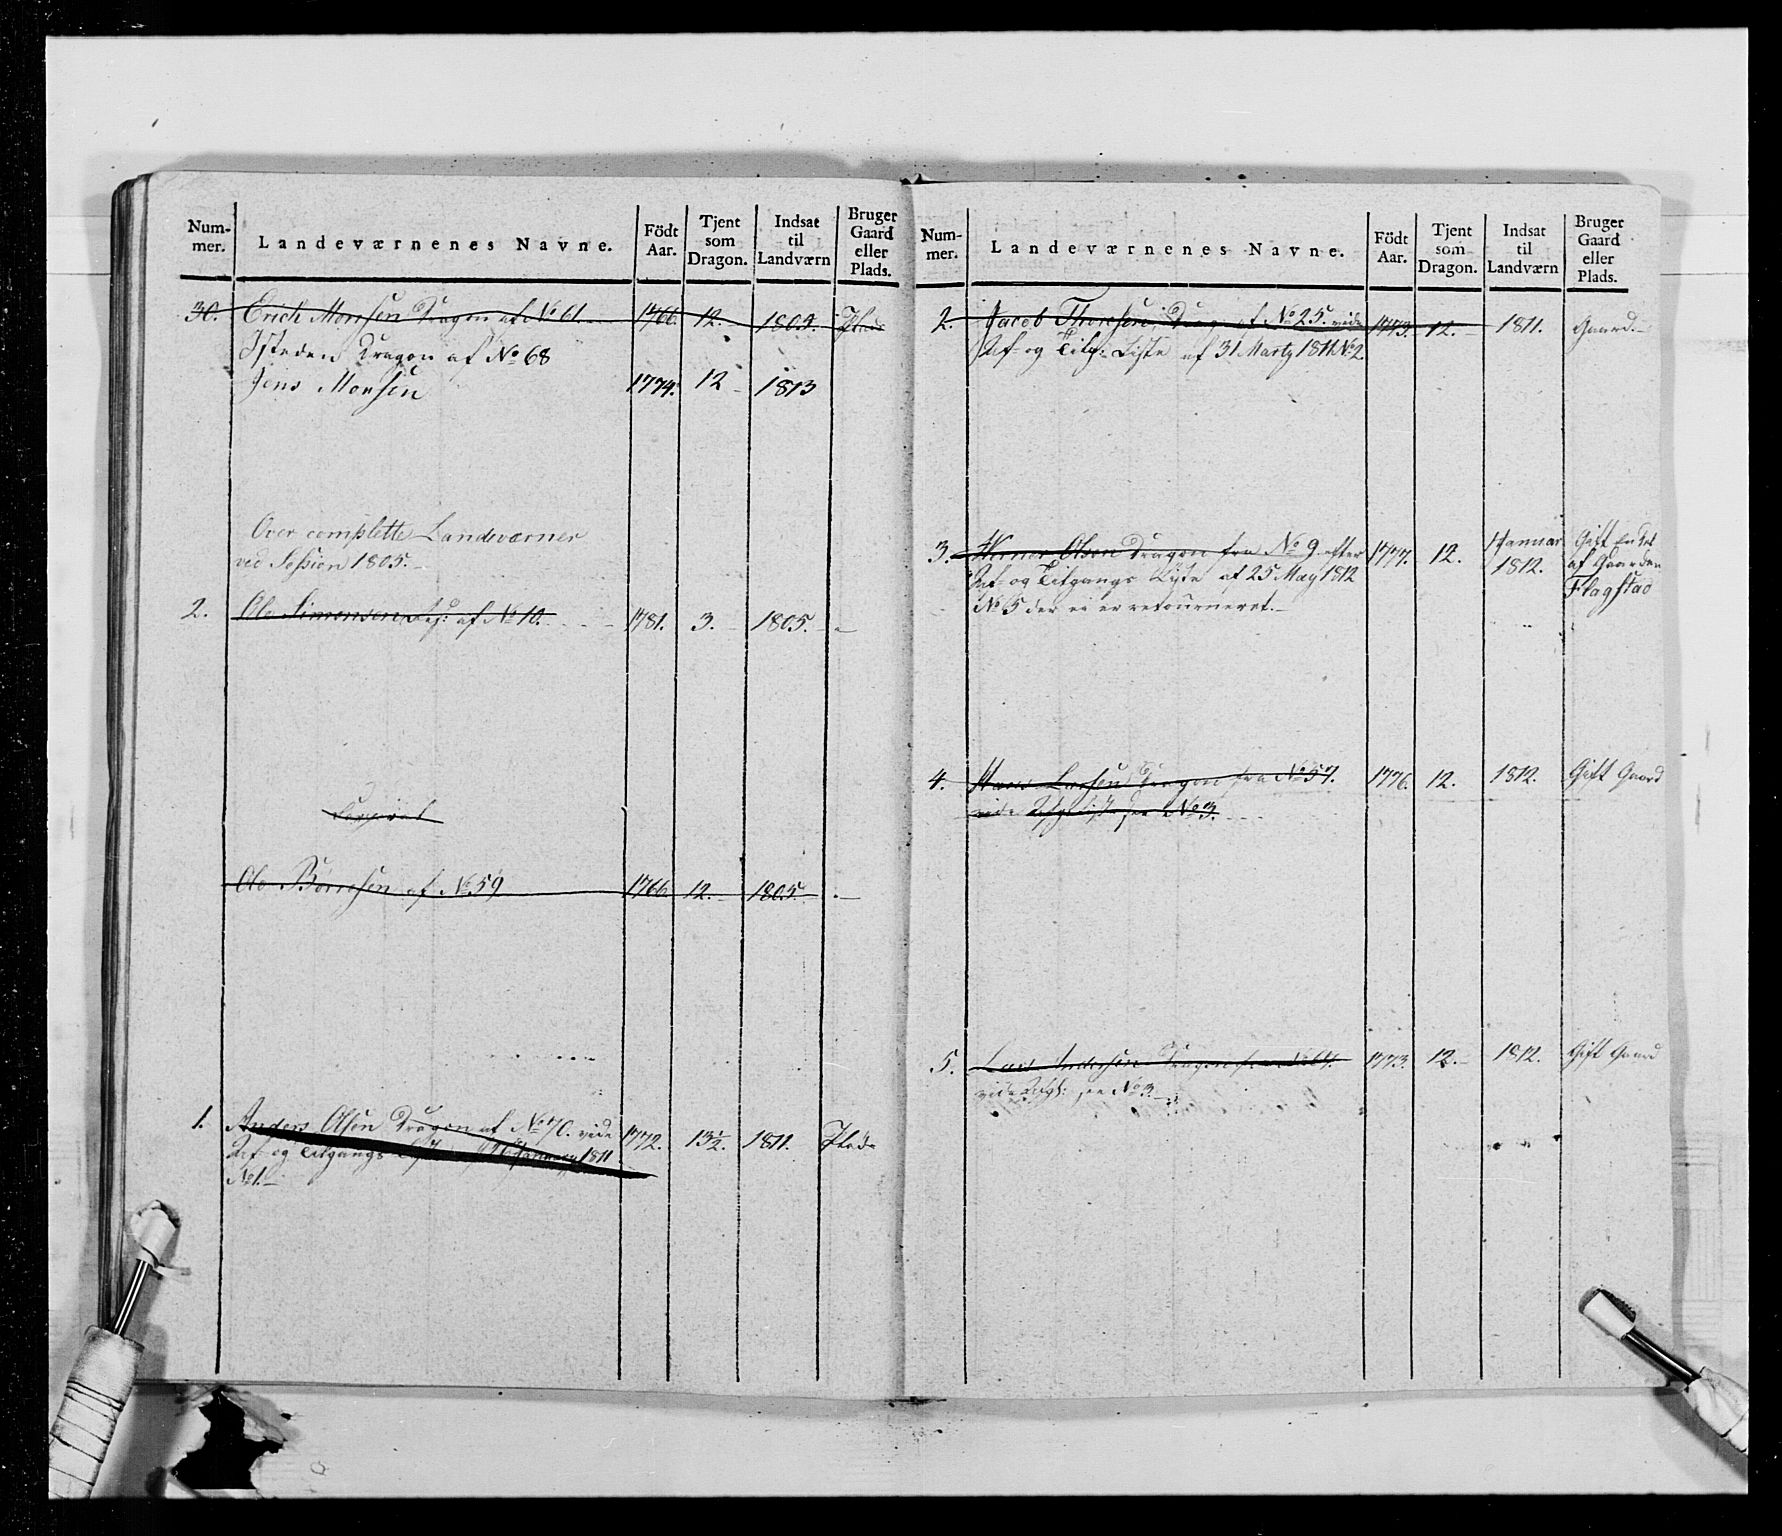 Num- mer. Landeværnenes Navne. Födt Aar. Tjent som Dragon. Indsat til Landværn Bruger Gaard eller Plads.
30. Erich Monsen Dragon af No 61 1766. 12. 1805. Plads
Isteden Dragon af No 68
Jens Monsen 1774. 12 1813
Over complette Landeværner
ved Session 1805.
2. Ole Simonsen af No 10. 1781. 3. 1805.
Corporal
Ole Börresen af No 59 1766 12. 1805.
1. Anders Olsen Dragon af No 70. vide 1772. 13½. 1811. Plads
Af- og Tilgangs Liste January 1811
No 1.
Num- mer. Landeværnenes Navne. Födt Aar. Tjent som Dragon. Indsat til Landværn Bruger Gaard eller Plads.
2. Jacob Thoresen, Drag. af No 25. vide 1773. 12. 1811. Gaard.
Af- og Tilg: Liste af 31 Marty 1811 No 2.
3. Olsen Dragon fra No 9 efter 1777. 12. 1 Januar 1812. Gift Enkel af Gaarden Flagstad
Af- og Tilgangs Liste af 25 May 1812
No 5 der ei er retourneret.
4. Hans Larsen Dragon fra No 57. 1776. 12. 1812. Gift Gaard
vide No 3.
5. Lars Andersen Dragon fra No 64. 1773. 12. 1812. Gift Gaard
vide No 3.